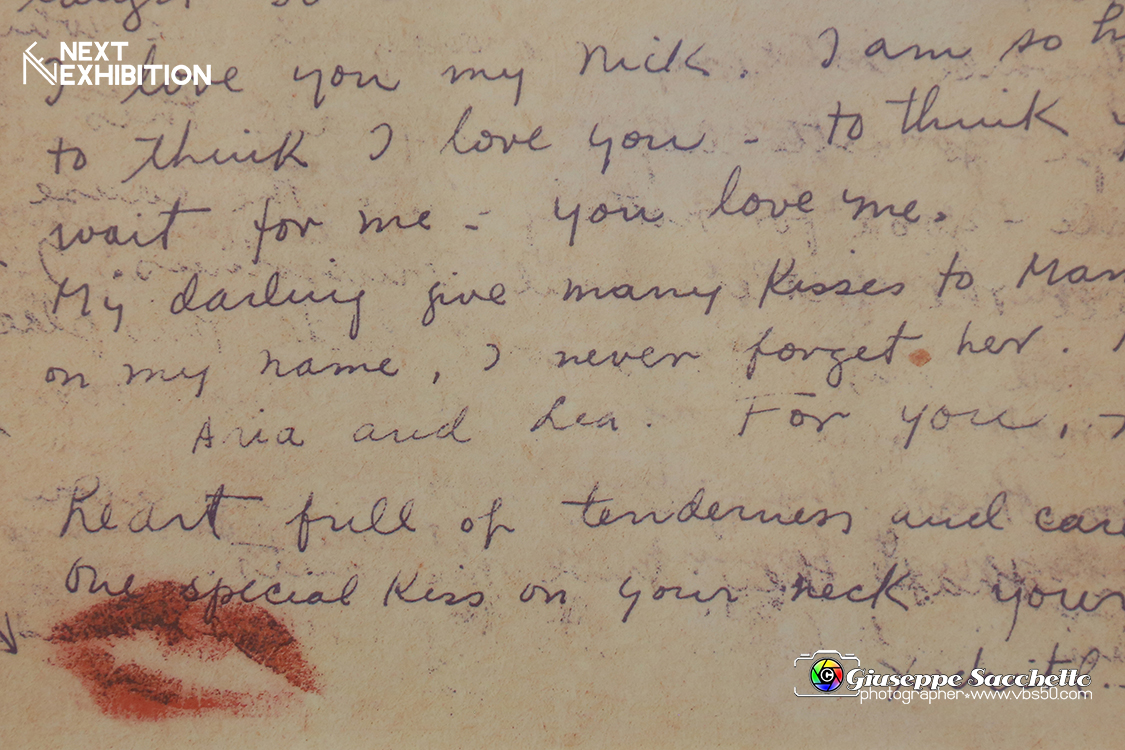 NEXT EXHIBITION
I love you my Nick. I am so
to think I love you - to think
wait for me - you love me.
My darling give many kisses to
on my name, I never forget her.
Aria and Lea. For you,
heart full of tenderness and
One special Kiss on your neck. your
Giuseppe Sacchetto
photographer•www.vbs50.com